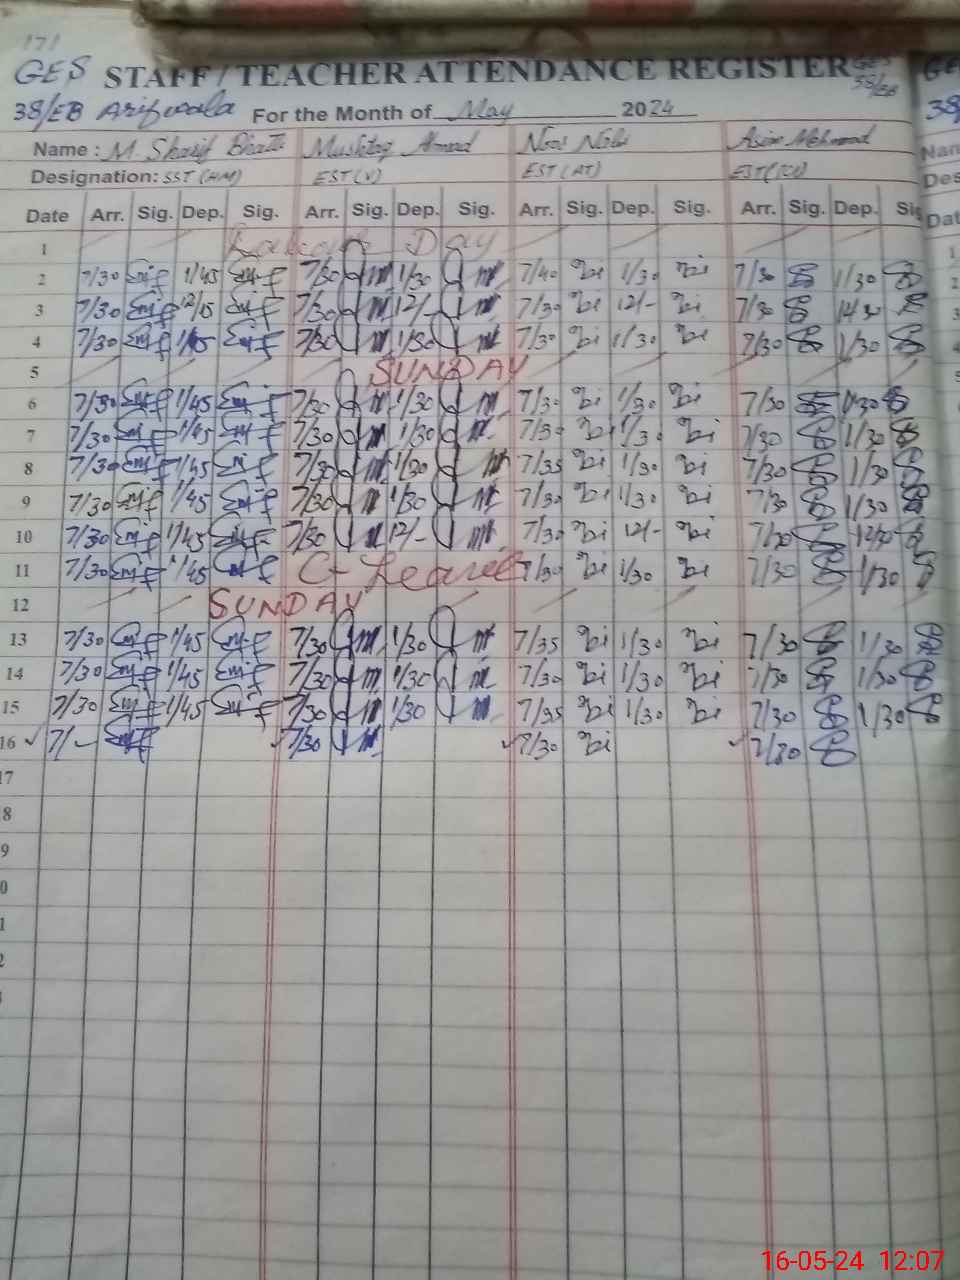 171
GES STAFF / TEACHER ATTENDANCE REGISTER GES
38/EB
38/EB Arifwala For the Month of May 2024
Name : M. Sharif Bhatti Mushtaq Ahmad Noor Nabi Asim Mehmood
Designation: SST (HM) EST (V) EST (AT)
Date Arr. Sig. Dep. Sig. Arr. Sig. Dep. Sig. Arr. Sig. Dep. Sig. Arr. Sig. Dep. Sig
1 Labour Day
2 7/30 1/45 7/30 1/30 7/40 1/30 7/30 1/30
3 7/30 12/15 7/30 12/- 7/30 12/- 7/30
4 7/30 1/45 7/30 1/30 7/30 1/30 7/30 1/30
5 SUNDAY
6 7/30 1/45 7/30 1/30 7/30 1/30 7/30 1/30
7 7/30 1/45 7/30 1/30 7/30 1/30 7/30 1/30
8 7/30 1/45 7/30 1/30 7/35 1/30 7/30 1/30
9 7/30 1/45 7/30 1/30 7/30 1/30 7/30 1/30
10 7/30 1/45 7/30 12/- 7/30 12/- 7/30
11 7/30 1/45 C-Leave 7/30 1/30 7/30 1/30
12 SUNDAY
13 7/30 1/45 7/30 1/30 7/35 1/30 7/30 1/30
14 7/30 1/45 7/30 1/30 7/30 1/30 7/30 1/30
15 7/30 1/45 7/30 1/30 7/35 1/30 7/30 1/30
16 7/- 7/30 7/30 7/30
17
8
9
0
1
2
16-05-24 12:07